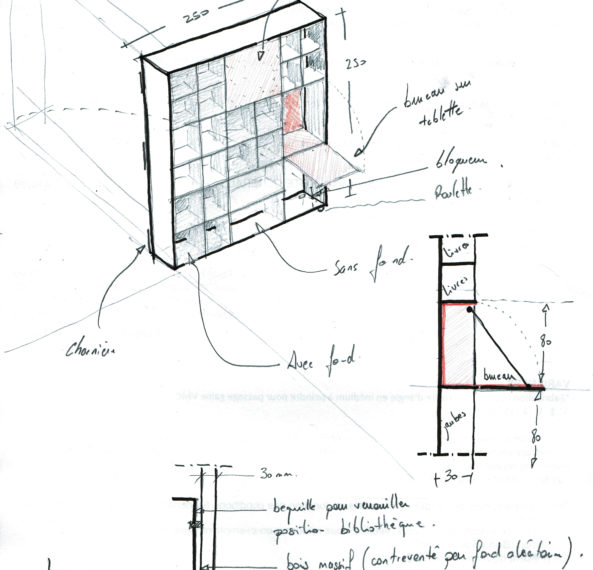 250
250
bureau sur
tablette
bloqueur
Roulette
Sans fond.
Charnière
Avec fond
livres
livres
80
bureau
jambes
80
30
30 mm.
bequille pour verrouiller
position bibliothèque.
bois massif (contreventé par fond aléatoire).